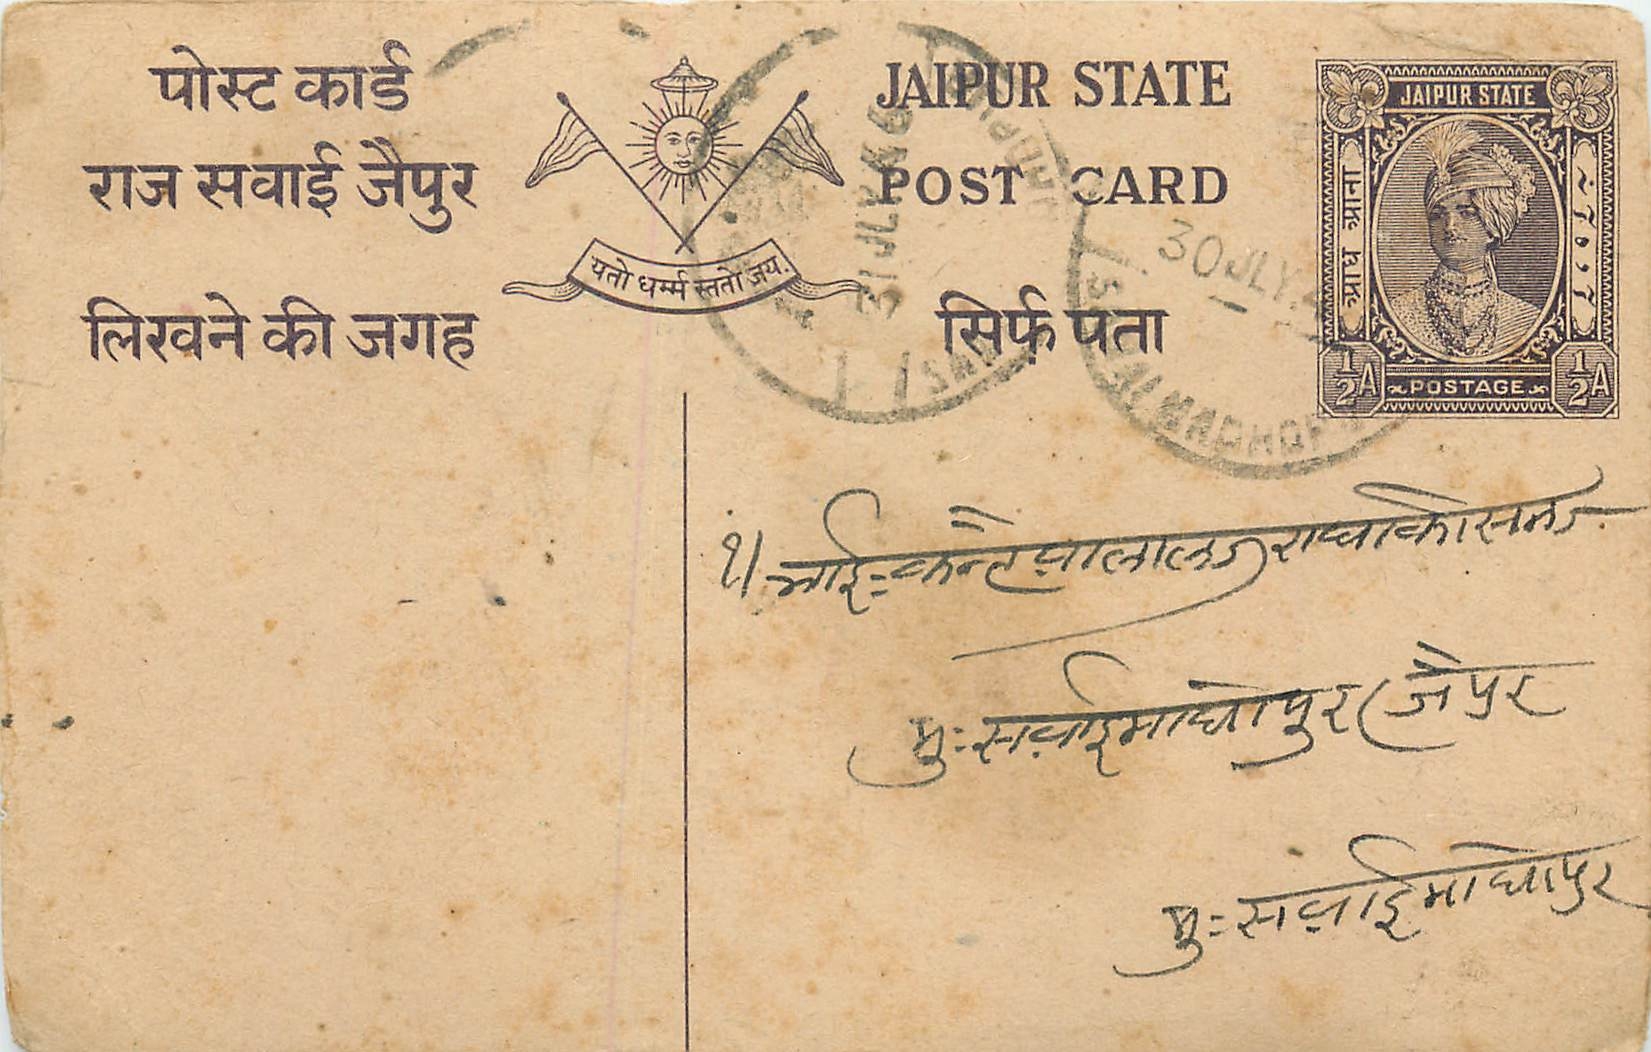 पोस्ट कार्ड
राज सवाई जैपुर
लिखने की जगह
यतो धर्म्म स्ततो जय.
JAIPUR STATE
POST CARD
सिर्फ़ पता
JAIPUR STATE
½A POSTAGE ½A
31 JLY
30 JLY
१) भाई
मु: सवाईमाधोपुर (जैपुर
मु: सवाईमाधोपुर